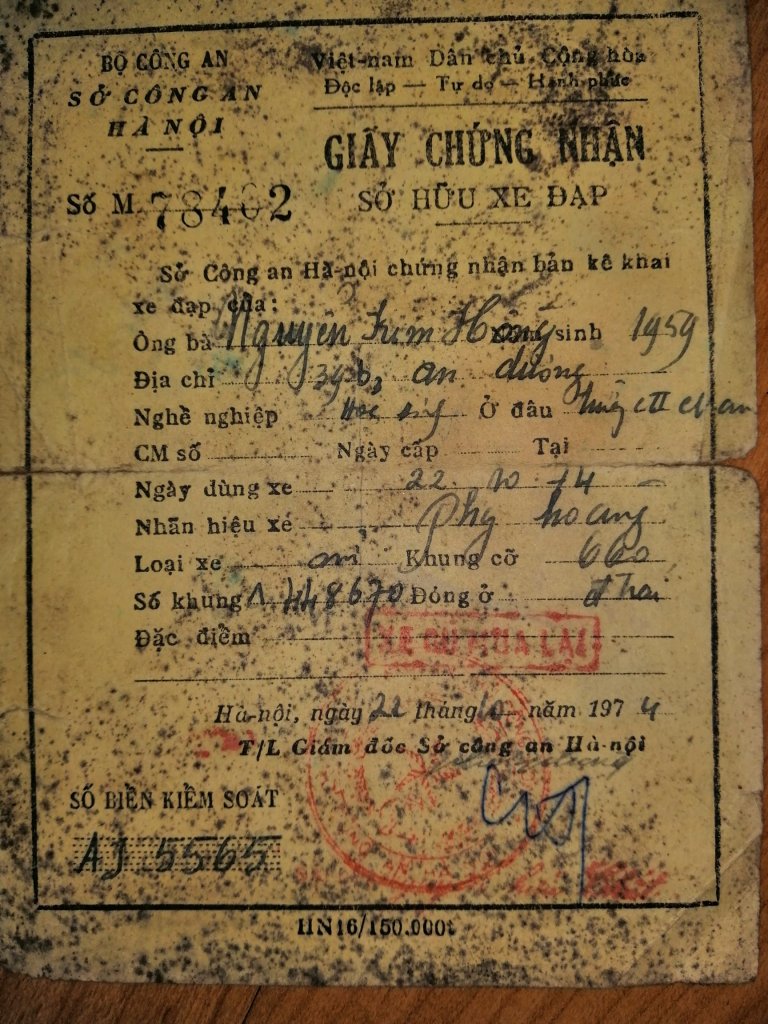 BỘ CÔNG AN
SỞ CÔNG AN
HÀ NỘI
Việt-nam Dân chủ Cộng hòa
Độc lập — Tự do — Hạnh phúc
GIẤY CHỨNG NHẬN
SỞ HỮU XE ĐẠP
Số M. 78402
Sở Công an Hà-nội chứng nhận bản kê khai
xe đạp của:
Ông bà Nguyễn Kim Hồng sinh 1959
Địa chỉ An dương
Nghề nghiệp Học sinh Ở đâu
CM số Ngày cấp Tại
Ngày dùng xe 22 10 74
Nhãn hiệu xe Phg hoàng
Loại xe Khung cỡ 660
Số khung 448670 Đóng ở
Đặc điểm
XE CŨ MUA LẠI
Hà-nội, ngày 22 tháng 10 năm 1974
T/L Giám đốc Sở công an Hà-nội
SỐ BIỂN KIỂM SOÁT
AJ 5565
HN16/150.000t